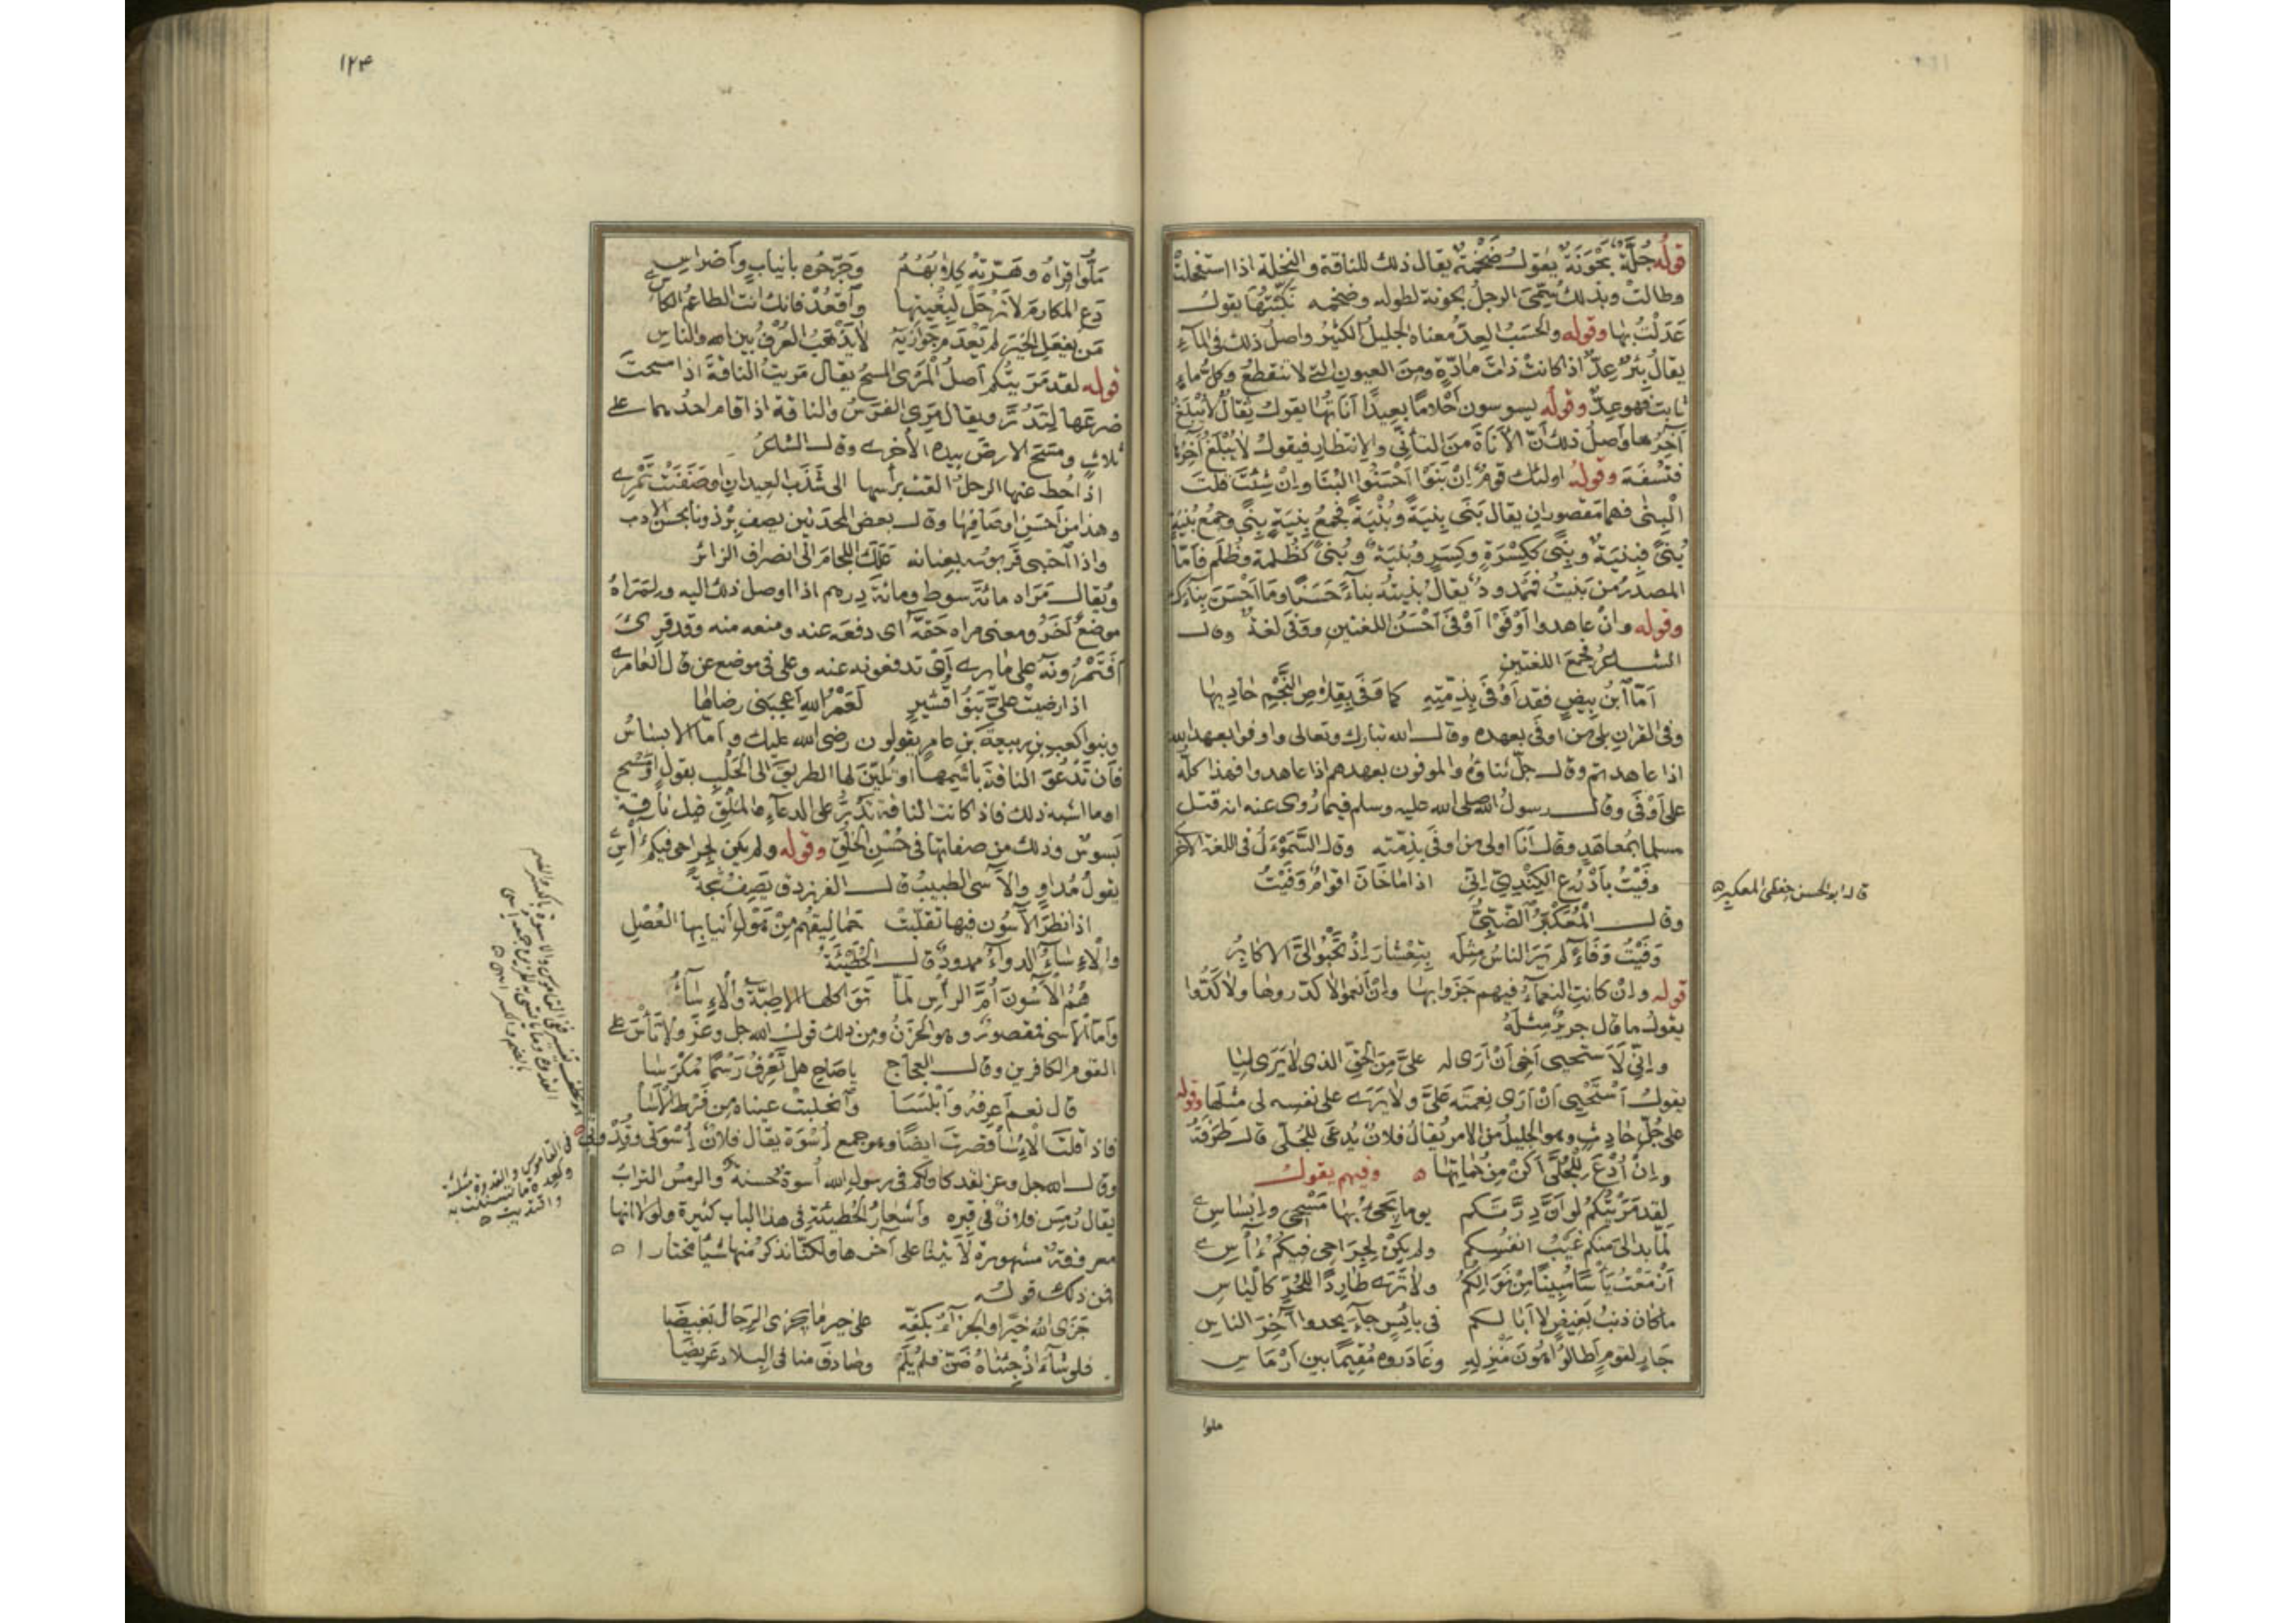 قولُه جُلَّةٌ بَحْوَنَةٌ يقول ضَخْمَةٌ يقال ذلك للناقة و النخلة اذا استفحلتْ
وطالتْ وبذلك يُسَمَّى الرجلُ بحونة لطوله وضخمه نَكَّبْتُها يقول
عَدَلْتُ بها وقوله والحَسَبُ العِدُّ معناه الجليلُ الكثيرُ واصل ذلك في المآءِ
يقالُ بئرٌ عِدٌّ اذا كانتْ ذاتَ مادّةٍ ومِنَ العيون التي لا تنقطعُ وكلُّ ماءٍ
ثابت فهو عِدٌّ وقوله يسوسون أحْلامًا بعيدًا أناتُها يقول يُقالُ لا يُبْلَغُ
آخِرُها وأصلُ ذلك أنّ الأناةَ مِنَ التأنّي والانتظارِ فيقول لا يُبْلَغُ آخِرُها
فتُسْفَهَ وقولُه اولئك قومٌ إنْ بَنَوْا أحْسَنُوا البُنَا وإنْ شِئْتَ قلتَ
الْبِنٰى فهما مَقصورانِ يقال بَنَى بِنيَةً وبُنْيَةً فجمعُ بِنيَةٍ بِنًى وجمعُ بُنيَةٍ
بُنىً فبِنيَةٌ وبِنًى ككِسْرَةٍ وكِسَرٍ وبُنيَةٌ وبُنىً كظُلمة وظُلَم فأمّا
المصدَرُ من بَنَيتُ فممدودٌ يقالُ بنيتُه بناءً حَسَنًا وما أحْسَنَ بناءَك
وقوله وإنْ عاهدوا أوْفَوْا أوْفَى أحْسَنُ اللغتين ووَفَى لغةٌ وقال
الشاعرُ فجمعَ اللغتين
أمّا ابنُ بِيضٍ فقد أوْفَى بِذِمّتِهِ كما وَفَى بقِلاصِ النَّجْمِ حاديها
وفي القرانِ بلى من اوفَى بعهده وقال الله تبارك وتعالى واوفوا بعهد الله
اذا عاهدتم وقال جلّ ثناؤهُ والموفون بعهدهم اذا عاهدوا فهذا كلّه
على أوْفَى وقال رسولُ الله صلى الله عليه وسلم فيما رُوِى عنه انه قتل
مسلما بمُعاهَدٍ وقال أنا اولى من اوفى بذِمّته وقال السَّمَوْءَلُ في اللغة الأخرى
وفَيْتُ بأدْرُعِ الكِنْدِيِّ إنّي اذا ما خَانَ أقوامٌ وَفَيْتُ
قاله ابو الحسن حفظى المعكبر
وقال المُعَكْبَرُ الضَّبِّيُّ
وَفَيْتُ وَفَاءً لم يَرَ الناسُ مِثلَه بِتِعْشارَ إذْ تَحْبُو الَيَّ الاكابرُ
قوله وإنْ كانتِ النعمآءُ فيهم جَزَوا بها وإنْ أنعموا لا كدّروها ولا كَدُّوا
يقول ما قال جريرٌ مِثلَهُ
وإنّي لَأستحيي أخي أنْ أرَى له عليَّ مِنَ الحقِّ الذي لا يَرَى لِيَا
يقول أسْتَحْيِي أنْ أرَى نِعمَتَه عَلَيَّ ولا يَرَى على نفسِه لي مثلَها وقوله
على جُلِّ حادثٍ وهو الجليلُ من الامر يُقالُ فلانٌ يُدعَى للجُلّى قال طَرَفَةُ
وإنْ أُدْعَ لِلْجُلَّى أكنْ مِنْ حُماتِها ه وفيهم يقول
لقد مَرَيْتُكم لو أنَّ دِرَّتَكم يوما يَجِيءُ بها مَسْحي وإبْسَاسِي
لمّا بدا لي منكم غَيْبُ انفُسِكم ولم يكنْ لِجِرَاحي فيكُم ءَاسِ
أزْمَعْتُ يَأْسًا مُبِينًا مِنْ نَوَالِكُمُ ولا تَرَى طارِدًا لِلحُرِّ كاليَاسِ
ما كان ذنبُ بَغِيضٍ لا أبا لكم في بائِسٍ جآءَ يحدو آخِرَ الناسِ
جَارٍ لقومٍ أطالُوا هُونَ مَنزِلِهِ وغَادَروه مُقيمًا بين أرْمَاسِ
ملوا
١٢٣
مَلُّوا قِرَاهُ وهَرَّتْهُ كِلابُهُمُ وجَرَّحُوه بأنيابٍ وأضراسِ
دَعِ المكارمَ لا تَرْحَلْ لِبُغْيَتِها وآقعُدْ فانك انت الطاعمُ الكاسِي
مَن يفعَلِ الخَيْرَ لم يَعْدَمْ جَوَازِيَهُ لا يَذْهَبُ العُرْفُ بين الله والناسِ
قوله لقد مَرَيتُكم أصلُ المَرْىِ المسحُ يقال مَرَيتُ الناقةَ اذا مسحتَ
ضرعَها لتَدُرَّ ويقال مَرَى الفرسُ والناقة اذا قام احدُهما على
ثلاثٍ ومسَحَ الارضَ بيده الأخرى وقال الشاعرُ
اذا حُطَّ عنها الرحلُ القتْ برأسِها الى شَذَبِ العيدانِ او صَفَنَتْ تَمْرِي
وهذا من أحسَنِ اوصَافِها وقال بعض المحدَثين يصف بِرْذَونا بحسن الادب
واذا آحتبى قَرَبوسُه بعِنانه عَلَكَ اللجامَ الى انصرافِ الزائرِ
ويُقال مَرَاه مائةَ سوط ومائةَ درهم اذا اوصل ذلك اليه ولمَرَاهُ
موضعٌ آخَرُ ومعنى مراه حَقَّه اى دفعَه عنه ومنعه منه وقد قرىَ
أفَتَمْرُونَه على ما يرى أيْ تدفعونه عنه وعلى في موضع عن قال العامرى
اذا رضيتْ عليَّ بَنُو قُشَيرٍ لَعَمْرُ اللهِ أعجَبَني رضاها
وبنو كعبِ بنِ ربيعةَ بنِ عامرٍ يقولون رضى الله عليك وأما الابساسُ
فأن تدْعُوَ الناقةَ باسْمِها او تُليّنَ لها الطريقَ الى الحَلَبِ بقولٍ او مَسْحٍ
او ما اشبه ذلك فاذا كانت الناقة تَدُرُّ على الدعآءِ والمَلَقِ قيل ناقة
بَسوسٌ وذلك من صفاتِها في حُسْنِ الخُلُقِ وقوله ولم يكن لجراحى فيكم ءَاسِ
يقول مُداوٍ والآسي الطبيبُ قال الفرزدق يَصِفُ شجّةً
اذا نظرَ الآسُون فيها تقلّبتْ حماليقُهم مِنْ هَوْلِ أنيابِها العُصْلِ
والإسآءُ الدوآءُ ممدودٌ قال الحُطَيْئَةُ
هُمُ الآسُونَ أُمَّ الرأسِ لَمَّا تَوَاكلها الاطِبّةُ والإِسَآءُ
وأما الأسَى فمقصورٌ وهو الحُزْنُ ومن ذلك قول الله جل وعَزَّ ولا تَأْسَ على
القوم الكافرين وقال العجاج ياصَاحِ هل تَعْرِفُ رَسْمًا مُكْرَسَا
قال نعم أعرِفُهُ وأبْلَسَا وآنحلبتْ عيناه مِن فَرْطِ الأسَا
فاذا قلتَ الأُسَا قصرتَ ايضًا وهو جمع أُسْوَة يقال فلانٌ أُسْوَتي وقُدْوتي
وقال الله جل وعز لقد كان لكم في رسولِ الله أُسوةٌ حَسنةٌ والرمسُ الترابُ
يقال رُمِسَ فلانٌ في قبرِه وأشعارُ الحُطيئةِ في هذا الباب كثيرة ولولا انها
معروفةٌ مشهورة لأتينا على آخرها ولكنّا نذكر منها شيئا مختارا ه
فمن ذلك قوله
جَزَى اللهُ خيرًا والجزآءُ بكفّه على خير ما يجزى الرِّجالَ بَغِيضَا
فلو شآءَ إذْ جِئناهُ ضَنَّ فلم يُلَمْ وصَادَفَ منا في البلاد عَرِيضَا
في القاموس والقدوة مثلثة
وكعدة ما تسننت به
واقتديت ه